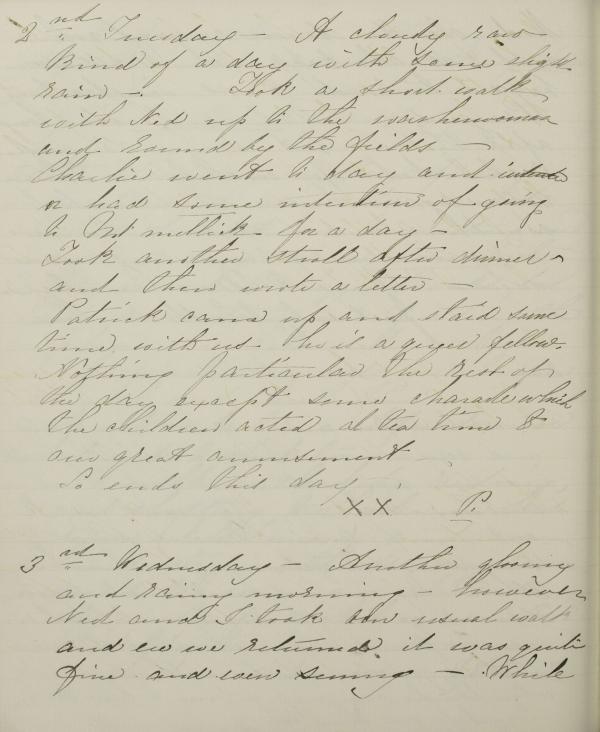 2nd Tuesday — A cloudy raw
Kind of a day with some slight
rain — Took a short walk
with Ned up to the washerwoman
and round by the fields —
Charlie went to day and
or had some intention of going
to Mt mellick for a day —
Took another stroll after dinner
and then wrote a letter —
Patrick came up and staid some
time with us he is a queer fellow.
Nothing particular the rest of
the day except some charade which
the children acted at tea time to
our great amusement
So ends this day
XX P.
3rd Wednesday — Another gloomy
and rainy morning — however
Ned and I took our usual walk
and ere we returned it was quite
fine and even sunny — While